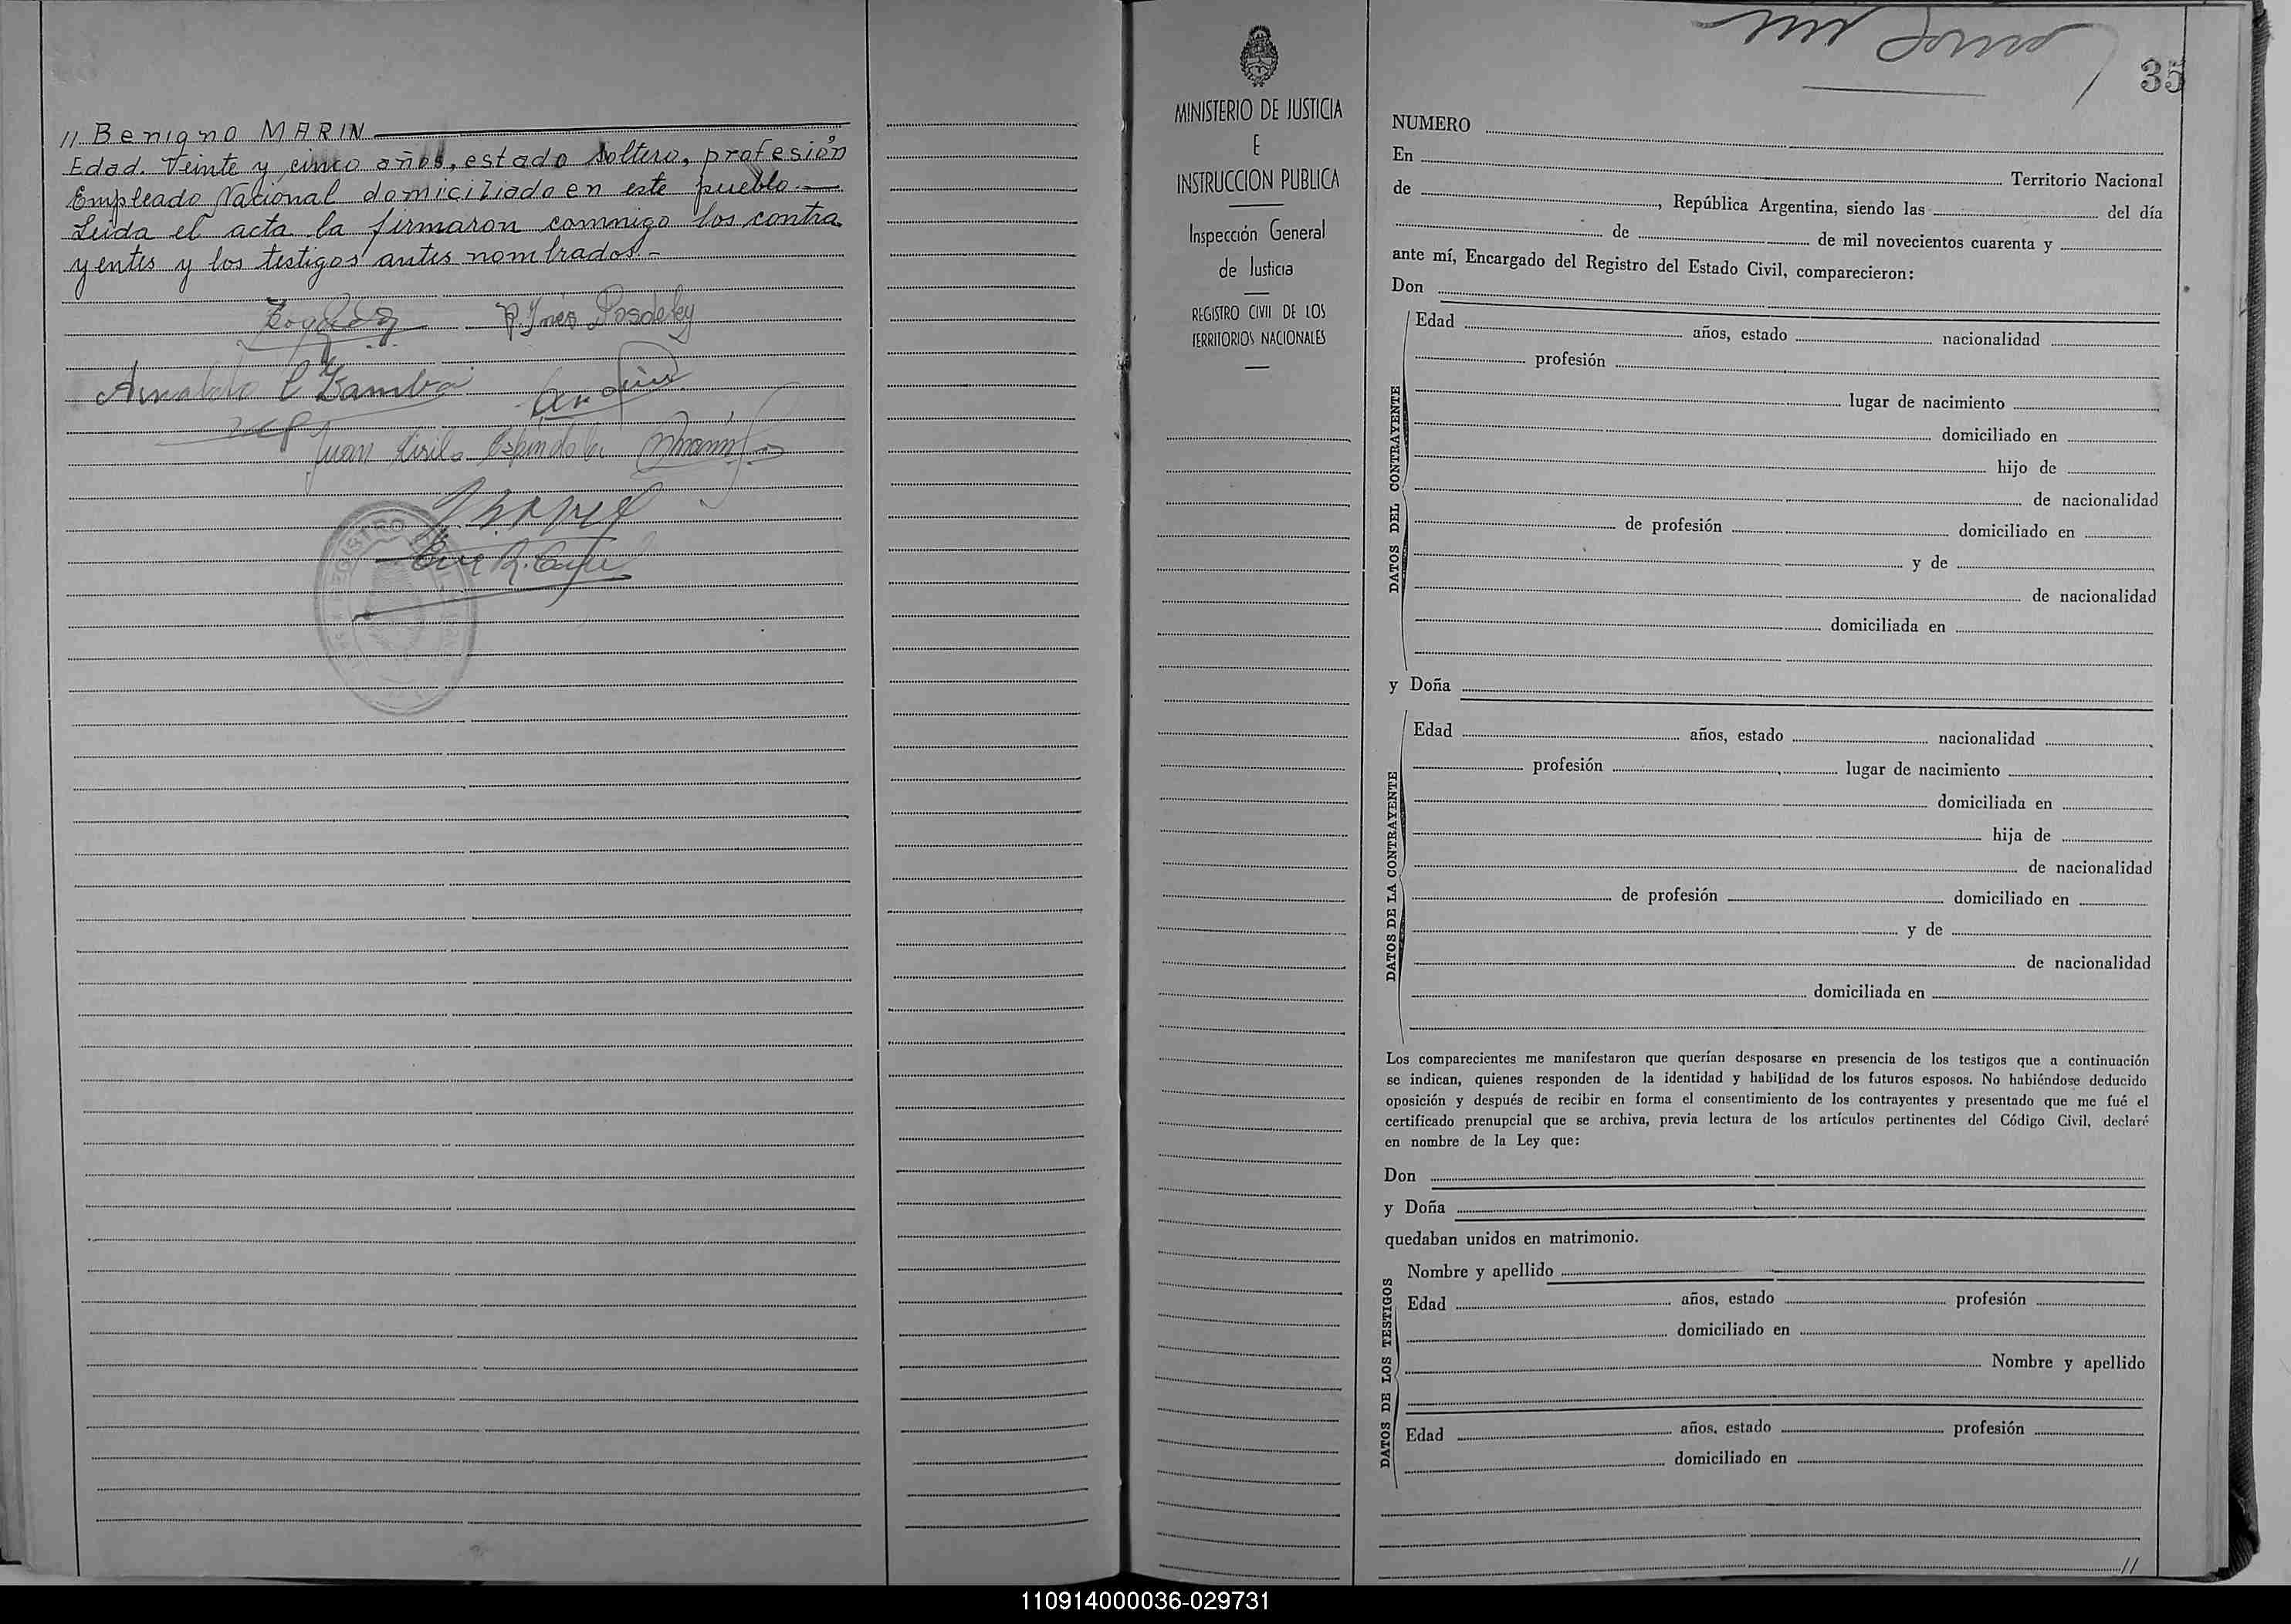 // Benigno MARIN
Edad. Veinte y cinco años, estado soltero, profesión
Empleado Nacional domiciliado en este pueblo.—
Leida el acta la firmaron conmigo los contra
yentes y los testigos antes nombrados.-
P. Inés Posdeley
Arnaldo C Gamba
Juan Espindola
MINISTERIO DE JUSTICIA
E
INSTRUCCION PUBLICA
Inspección General
de Justicia
REGISTRO CIVIL DE LOS
TERRITORIOS NACIONALES
35
NUMERO
En Territorio Nacional
de , República Argentina, siendo las del día
de de mil novecientos cuarenta y
ante mí, Encargado del Registro del Estado Civil, comparecieron:
Don
DATOS DEL CONTRAYENTE
Edad años, estado nacionalidad
profesión
lugar de nacimiento
domiciliado en
hijo de
de nacionalidad
de profesión domiciliado en
y de
de nacionalidad
domiciliada en
y Doña
DATOS DE LA CONTRAYENTE
Edad años, estado nacionalidad
profesión lugar de nacimiento
domiciliada en
hija de
de nacionalidad
de profesión domiciliado en
y de
de nacionalidad
domiciliada en
Los comparecientes me manifestaron que querían desposarse en presencia de los testigos que a continuación
se indican, quienes responden de la identidad y habilidad de los futuros esposos. No habiéndose deducido
oposición y después de recibir en forma el consentimiento de los contrayentes y presentado que me fué el
certificado prenupcial que se archiva, previa lectura de los artículos pertinentes del Código Civil, declaré
en nombre de la Ley que:
Don
y Doña
quedaban unidos en matrimonio.
DATOS DE LOS TESTIGOS
Nombre y apellido
Edad años, estado profesión
domiciliado en
Nombre y apellido
Edad años, estado profesión
domiciliado en
//
110914000036-029731